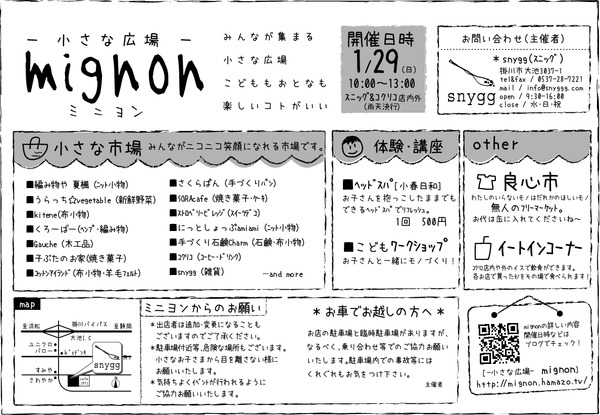 ― 小さな広場 ―
mignon
ミニヨン
みんなが集まる
小さな広場
こどももおとなも
楽しいコトがいい
開催日時
1/29(日)
10:00~13:00
スニッグ&コクリコ店内外
(雨天決行)
お問い合わせ(主催者)
snygg
*snygg(スニッグ)
掛川市大池3037-1
tel&fax / 0537-28-7221
mail / info@snygg.com
open / 9:30-16:00
close / 水・日・祝
小さな市場 みんながニコニコ笑顔になれる市場です。
■編み物や 夏楓 (ニット小物)
■うらっち☆vegetable (新鮮野菜)
■kitene(布小物)
■くろーばー(ヘンプ・編み物)
■Gauche (木工品)
■子ぶたのお家(焼き菓子)
■コットンアイランド(布小物・羊毛フェルト)
■さくらぱん (手づくりパン)
■SORAcafe (焼き菓子・ケーキ)
■ストロベリービレッジ (スイーツデコ)
■にっとしょっぷamiami (ニット小物)
■手づくり石鹸Charm (石鹸・布小物)
■コクリコ (コーヒー・ドリンク)
■snygg (雑貨)
…and more
体験・講座
■ヘッドスパ [小春日和]
お子さんを抱っこしたままでも
できるヘッドスパでリフレッシュ。
1回 500円
■こどもワークショップ
お子さんと一緒にモノづくり!
other
良心市
わたしのいらないモノはだれかのほしいモノ
無人のフリーマーケット。
お代は缶に入れてくださいね~
イートインコーナー
コクリコ店内や外のイスで飲食ができます。
各お店で買ったものをその場で食べられます!
map
至浜松
掛川バイパス
至静岡
大池I.C
ユニクロ
パロー
すみや
さわやか
snygg
ミニヨンからのお願い
*出店者は追加・変更になることも
ございますのでご了承ください。
*駐車場付近等、危険な場所もございます。
小さなお子さまから目を離さない様に
お願いいたします。
*気持ちよくイベントが行われるように
ご協力お願いいたします。
*お車でお越しの方へ*
お店の駐車場と臨時駐車場がありますが、
なるべく、乗り合わせ等でのご協力お願い
いたします。駐車場内での事故等には
くれぐれもお気をつけ下さい。
主催者
mignonの詳しい内容
開催日時などは
ブログでチェック!
[-小さな広場- mignon]
http://mignon.hamazo.tv/